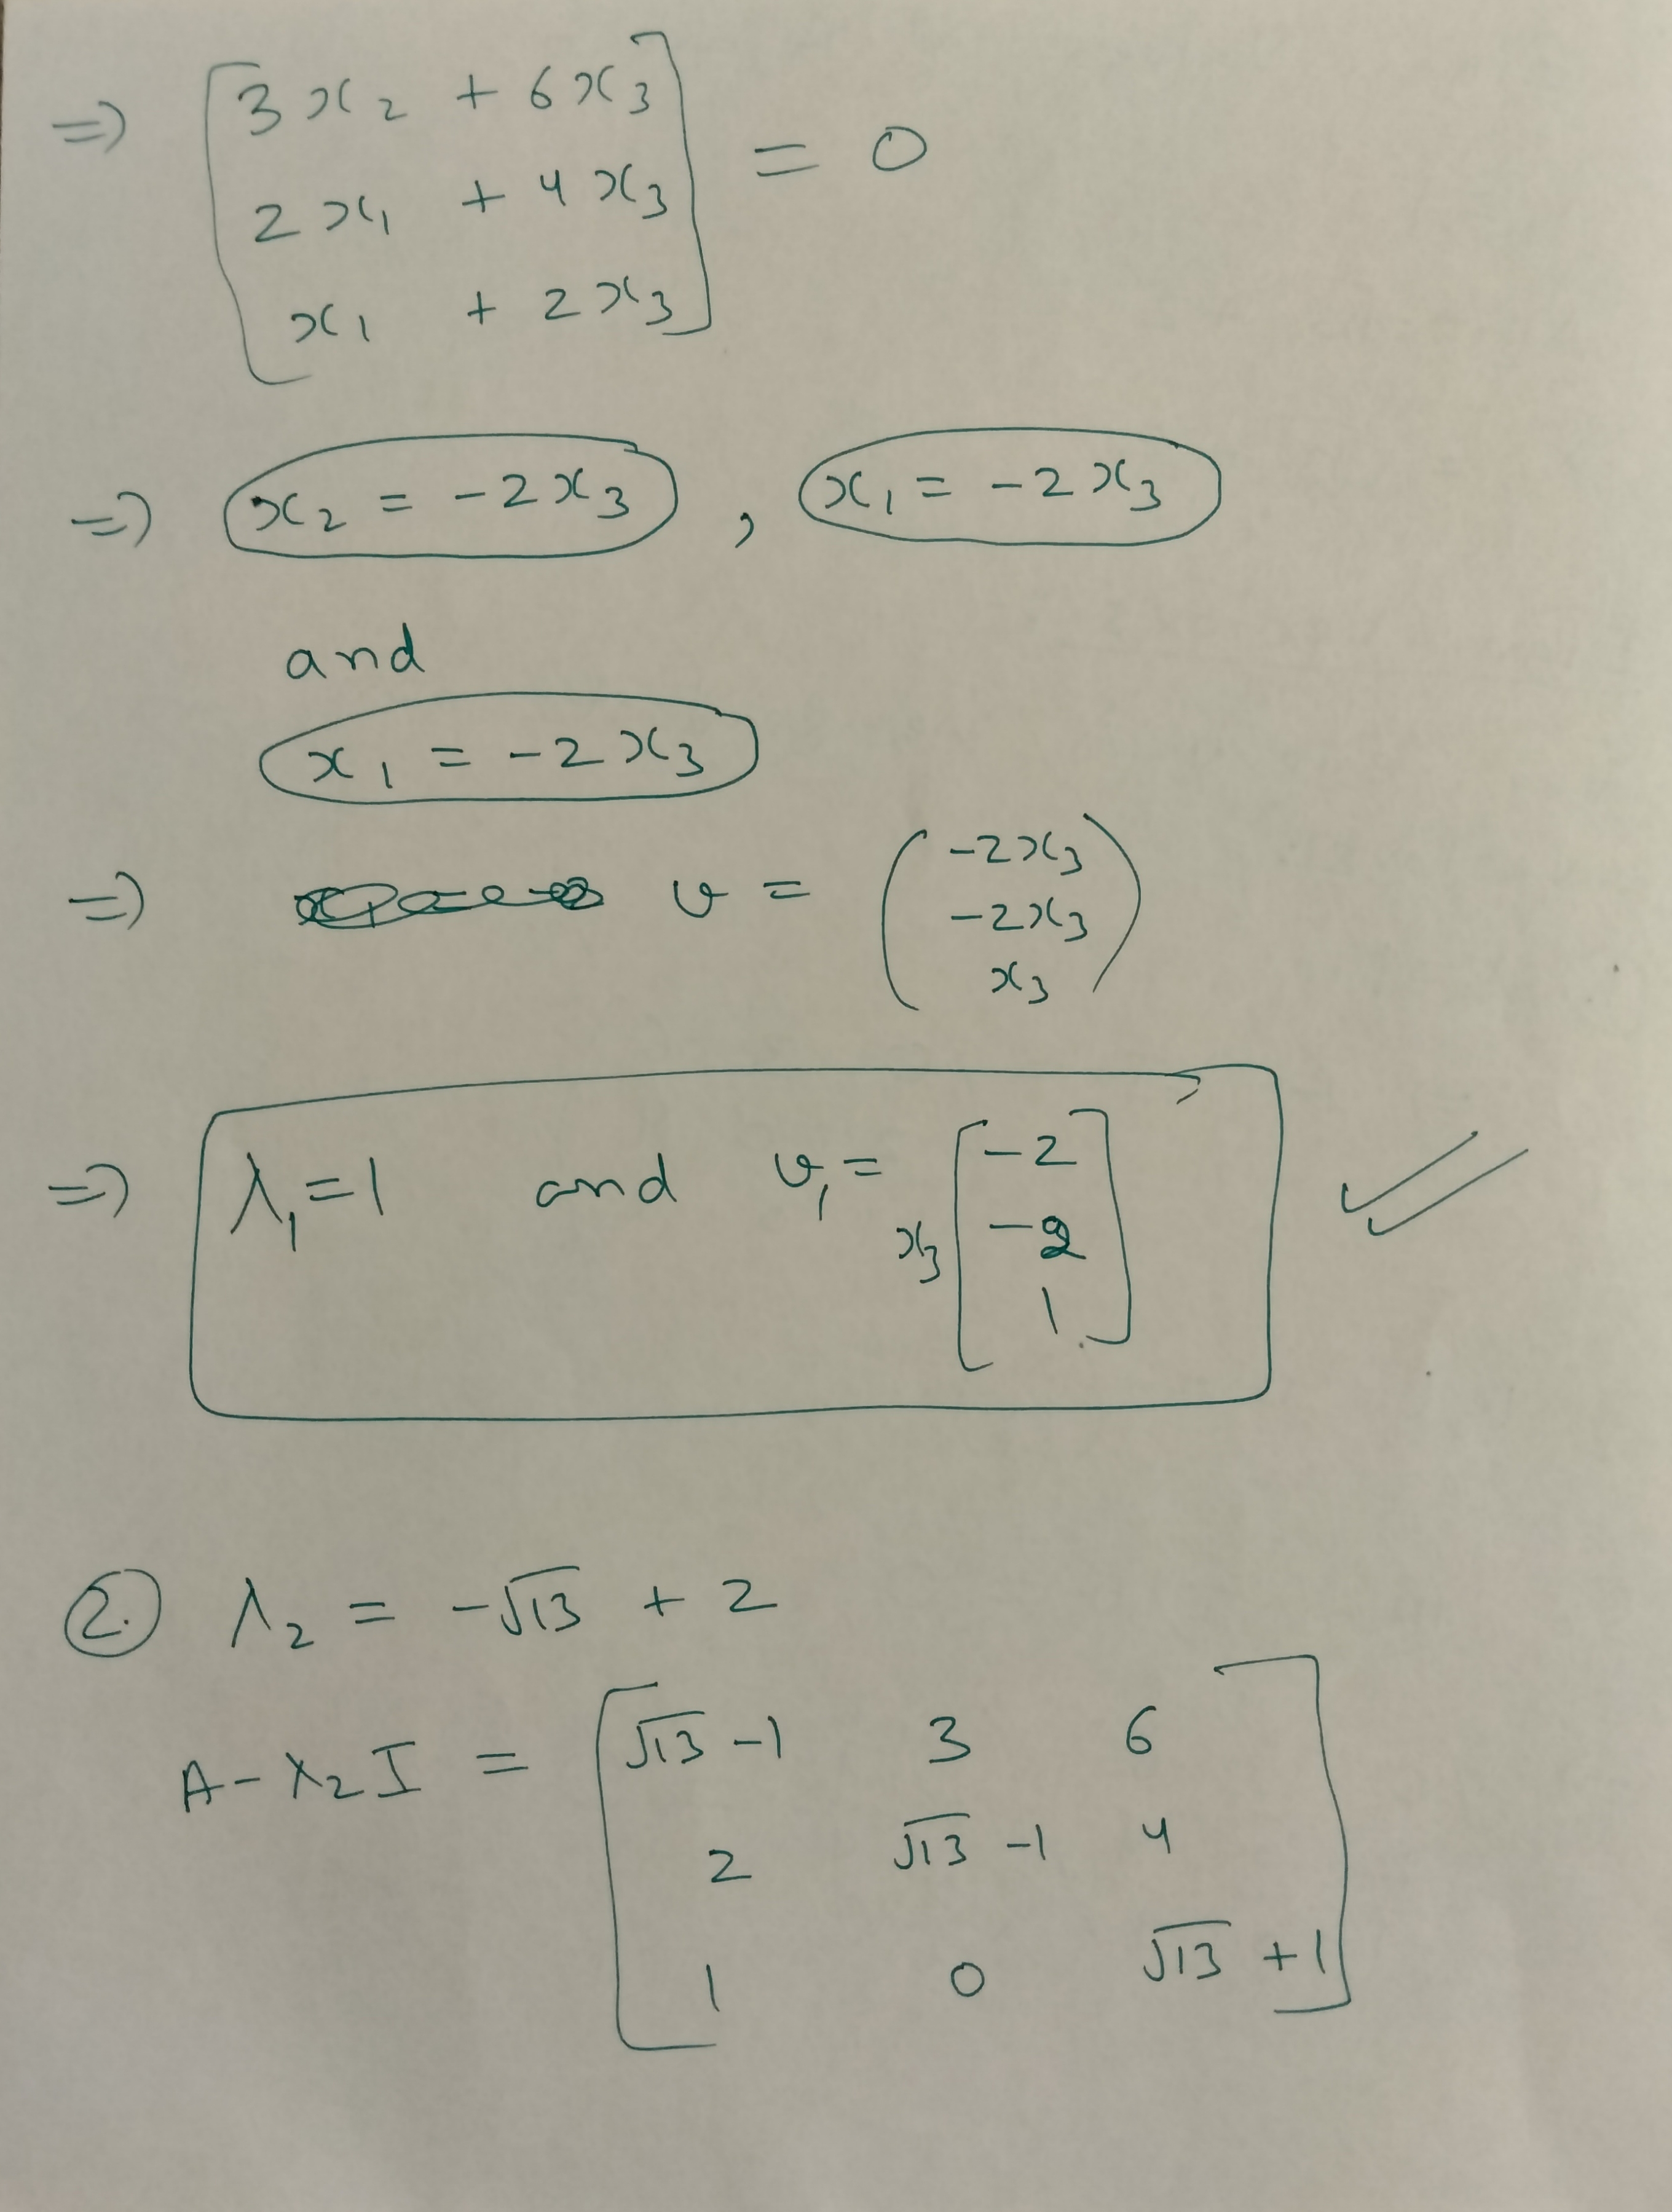 => [3x₂ + 6x₃
2x₁ + 4x₃
x₁ + 2x₃] = 0
=> x₂ = -2x₃ , x₁ = -2x₃
and
x₁ = -2x₃
=> v = (-2x₃
-2x₃
x₃)
=> λ₁=1 and v₁= x₃ [-2
-2
1]
2. λ₂ = -√13 + 2
A-λ₂I = [√13 -1 3 6
2 √13 -1 4
1 0 √13 +1]